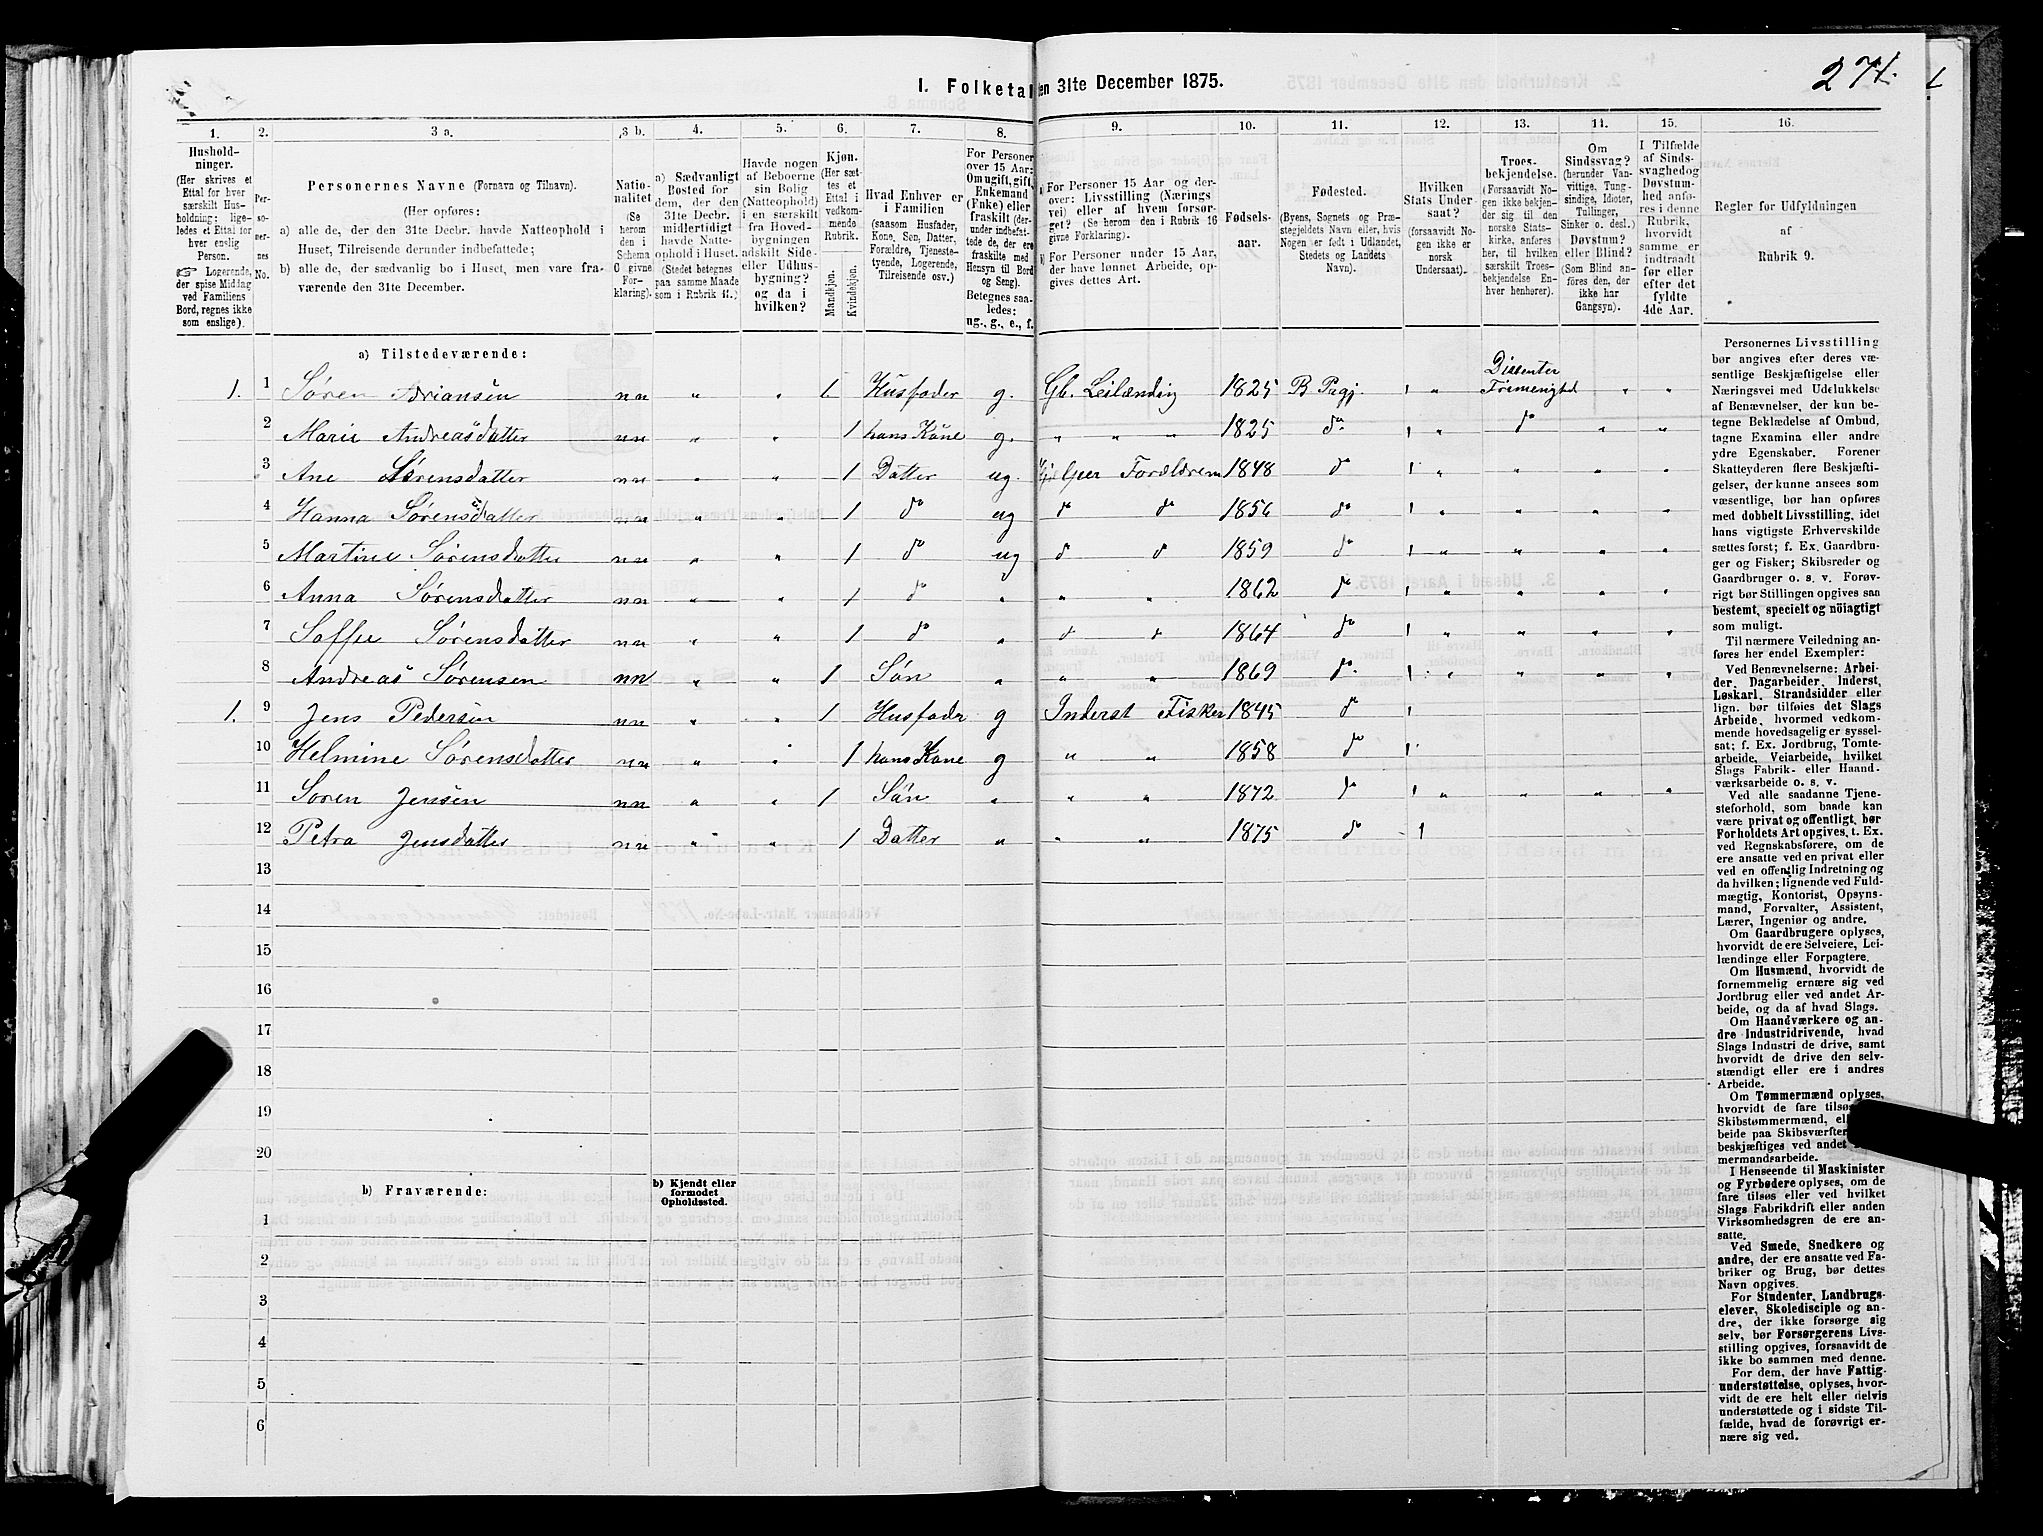 274.
1. Folketal den 31te December 1875.
1. 2. 3 a. 3 b. 4. 5. 6. 7. 8. 9. 10. 11. 12. 13. 14. 15. 16.
Hushold-
ninger.
(Her skrives et
Ettal for hver
særskilt Hus-
holdning; lige-
ledes et Ettal for
hver enslig
Person.
☞ Logerende,
der spise Middag
ved Familiens
Bord, regnes ikke
som enslige).
Per-
so-
ner-
nes
No.
Personernes Navne (Fornavn og Tilnavn).
(Her opføres:
a) alle de, der den 31te Decbr. havde Natteophold i
Huset, Tilreisende derunder indbefattede;
b) alle de, der sædvanlig bo i Huset, men vare fra-
værende den 31te December.
Natio-
nalitet
(Se
herom
den i
Schema
C givne
For-
klaring).
a) Sædvanligt
Bosted for
dem, der den
31te Decbr.
midlertidigt
havde Natte-
ophold i Huset.
(Stedet betegnes
paa samme Maade
som i Rubrik 11.)
Havde nogen
af Beboerne
sin Bolig
(Natteophold)
i en særskilt
fra Hoved-
bygningen
adskilt Side-
eller Udhus-
bygning?
og da i
hvilken?
Kjøn.
(Her sæt-
tes et
Ettal i
vedkom-
mende
Rubrik.
Mandkjøn.
Kvindekjøn.
Hvad Enhver er
i Familien
(saasom Husfader,
Kone, Søn, Datter,
Forældre, Tjeneste-
tyende, Logerende,
Tilreisende osv.)
For Personer
over 15 Aar:
Om ugift, gift,
Enkemand
(Enke) eller
fraskilt (der-
under indbefat-
tede de, der ere
fraskilte med
Hensyn til Bord
og Seng).
Betegnes saa-
ledes:
ug., g., e., f.
a) For Personer 15 Aar og der-
over: Livsstilling (Nærings
vei) eller af hvem forsør-
get? (Se herom den i Rubrik 16
givne Forklaring).
b) For Personer under 15 Aar,
der have lønnet Arbeide, op-
gives dettes Art.
Fødsels-
aar.
Fødested.
(Byens, Sognets og Præ-
stegjeldets Navn eller, hvis
Nogen er født i Udlandet,
Stedets og Landets
Navn).
Hvilken
Stats Under-
saat?
(forsaavidt No-
gen ikke er
norsk
Undersaat).
Troes-
bekjendelse.
(Forsaavidt No-
gen ikke bekjen-
der sig til den
norske Stats-
kirke, anføres
her, til hvilken
særskilt Troes-
bekjendelse En-
hver henhører).
Om
Sindssvag?
(herunder Van-
vittige, Tung-
sindige, Idioter,
Tullinger,
Sinker o. desl.)
Døvstum?
eller Blind?
(Som Blind an-
føres den, der
ikke har
Gangsyn).
I Tilfælde
af Sinds-
svaghed og
Døvstum-
hed anfø-
res i denne
Rubrik,
hvorvidt
samme er
indtraadt
før eller
efter det
fyldte
4de Aar.
Regler for Udfyldningen
af
Rubrik 9.
a) Tilstedeværende:
1. 1 Søren Adriansen nn „ „ 1 Husfader g. Gb. Leilænding 1825 B Prgj. 1 „ Dissenter Frimenighd „ „
2 Marie Andreasdatter nn „ „ 1 hans Kone g. „ „ „ 1825 do 1 „ do „ „
3 Ane Sørensdatter nn „ „ 1 Datter ug. Hjelper Forældrene 1848 do 1 „ „ „ „
4 Hanna Sørensdatter nn „ „ 1 do ug do do 1856 do 1 „ „ „ „
5 Martine Sørensdatter nn „ „ 1 do ug do do 1859 do 1 „ „ „ „
6 Anna Sørensdatter nn „ „ 1 do „ „ „ 1862 do 1 „ „ „ „
7 Soffie Sørensdatter nn „ „ 1 do „ do do 1864 do 1 „ „ „ „
8 Andreas Sørensen nn „ „ 1 Søn „ „ „ 1869 do 1 „ „ „ „
1. 9 Jens Pedersen nn „ „ 1 Husfader g Inderst Fisker 1845 do 1
10 Helmine Sørensdatter nn „ „ 1 hans Kone g „ „ 1858 do 1
11 Søren Jensen nn „ „ 1 Søn „ „ „ 1872 do 1 „ „ „ „
12 Petra Jensdatter nn „ „ 1 Datter „ „ „ 1875 do 1
13
14
15
16
17
18
19
20
b) Fraværende:
b) Kjendt eller
formodet
Opholdssted.
1
2
3
4
5
6
Personernes Livsstilling
bør angives efter deres væ-
sentlige Beskjæftigelse eller
Næringsvei med Udelukkelse
af Benævnelser, der kun be-
tegne Beklædelse af Ombud,
tagne Examina eller andre
ydre Egenskaber. Forener
Skatteyderen flere Beskjæfti-
gelser, der kunne ansees som
væsentlige, bør han opføres
med dobbelt Livsstilling, idet
hans vigtigste Erhvervskilde
sættes først; f. Ex. Gaardbru-
ger og Fisker; Skibsreder og
Gaardbruger o. s. v. Forøv-
rigt bør Stillingen opgives saa
bestemt, specielt og nöiagtigt
som muligt.
Til nærmere Veiledning an-
føres her endel Exempler:
Ved Benævnelserne: Arbei-
der, Dagarbeider, Inderst,
Løskarl, Strandsidder eller
lign. bør tilføies det Slags
Arbeide, hvormed vedkom-
mende hovedsagelig er syssel-
sat; f. Ex. Jordbrug, Tomte-
arbeide, Veiarbeide, hvilket
Slags Fabrik- eller Haand-
værksarbeide o. s. v.
Ved alle saadanne Tjene-
steforhold, som baade kan
være privat og offentligt, bør
Forholdets Art opgives, t. Ex.
ved Regnskabsførere, om de
ere ansatte ved en privat eller
ved en offentlig Indretning og
da hvilken; lignende ved Fuld-
mægtig, Kontorist, Opsyns-
mand, Forvalter, Assistent,
Lærer, Ingeniør og andre.
Om Gaardbrugere oplyses,
hvorvidt de ere Selveiere, Lei-
lændinge eller Forpagtere.
Om Husmænd, hvorvidt de
fornemmelig ernære sig ved
Jordbrug eller ved andet Ar-
beide, og da af hvad Slags.
Om Haandværkere og an-
dre Industridrivende, hvad
Slags Industri de drive, samt
hvorvidt de drive den selv-
stændigt eller ere i andres
Arbeide.
Om Tømmermænd oplyses,
hvorvidt de fare tilsøs
Skibstømmermænd,
beide paa Skibsværfter
beskjæftiges ved andet
mermandsarbeide.
I Henseende til Maskinister
og Fyrbødere oplyses, om de
fare tilsøs eller ved hvilket
Slags Fabrikdrift eller anden
Virksomhedsgren de ere an-
satte.
Ved Smede, Snedkere og
andre, der ere ansatte ved Fa-
briker og Brug, bør dettes
Navn opgives.
For Studenter, Landbrugs-
elever, Skoledisciple og an-
dre, der ikke forsørge sig
selv, bør Forsørgerens Livs-
stilling opgives, forsaavidt de
ikke bo sammen med denne.
For dem, der have Fattig-
understøttelse, oplyses, hvor-
vidt de ere helt eller delvis
understøttede og i sidste Til-
fælde, hvad de forøvrigt er-
nære sig ved.